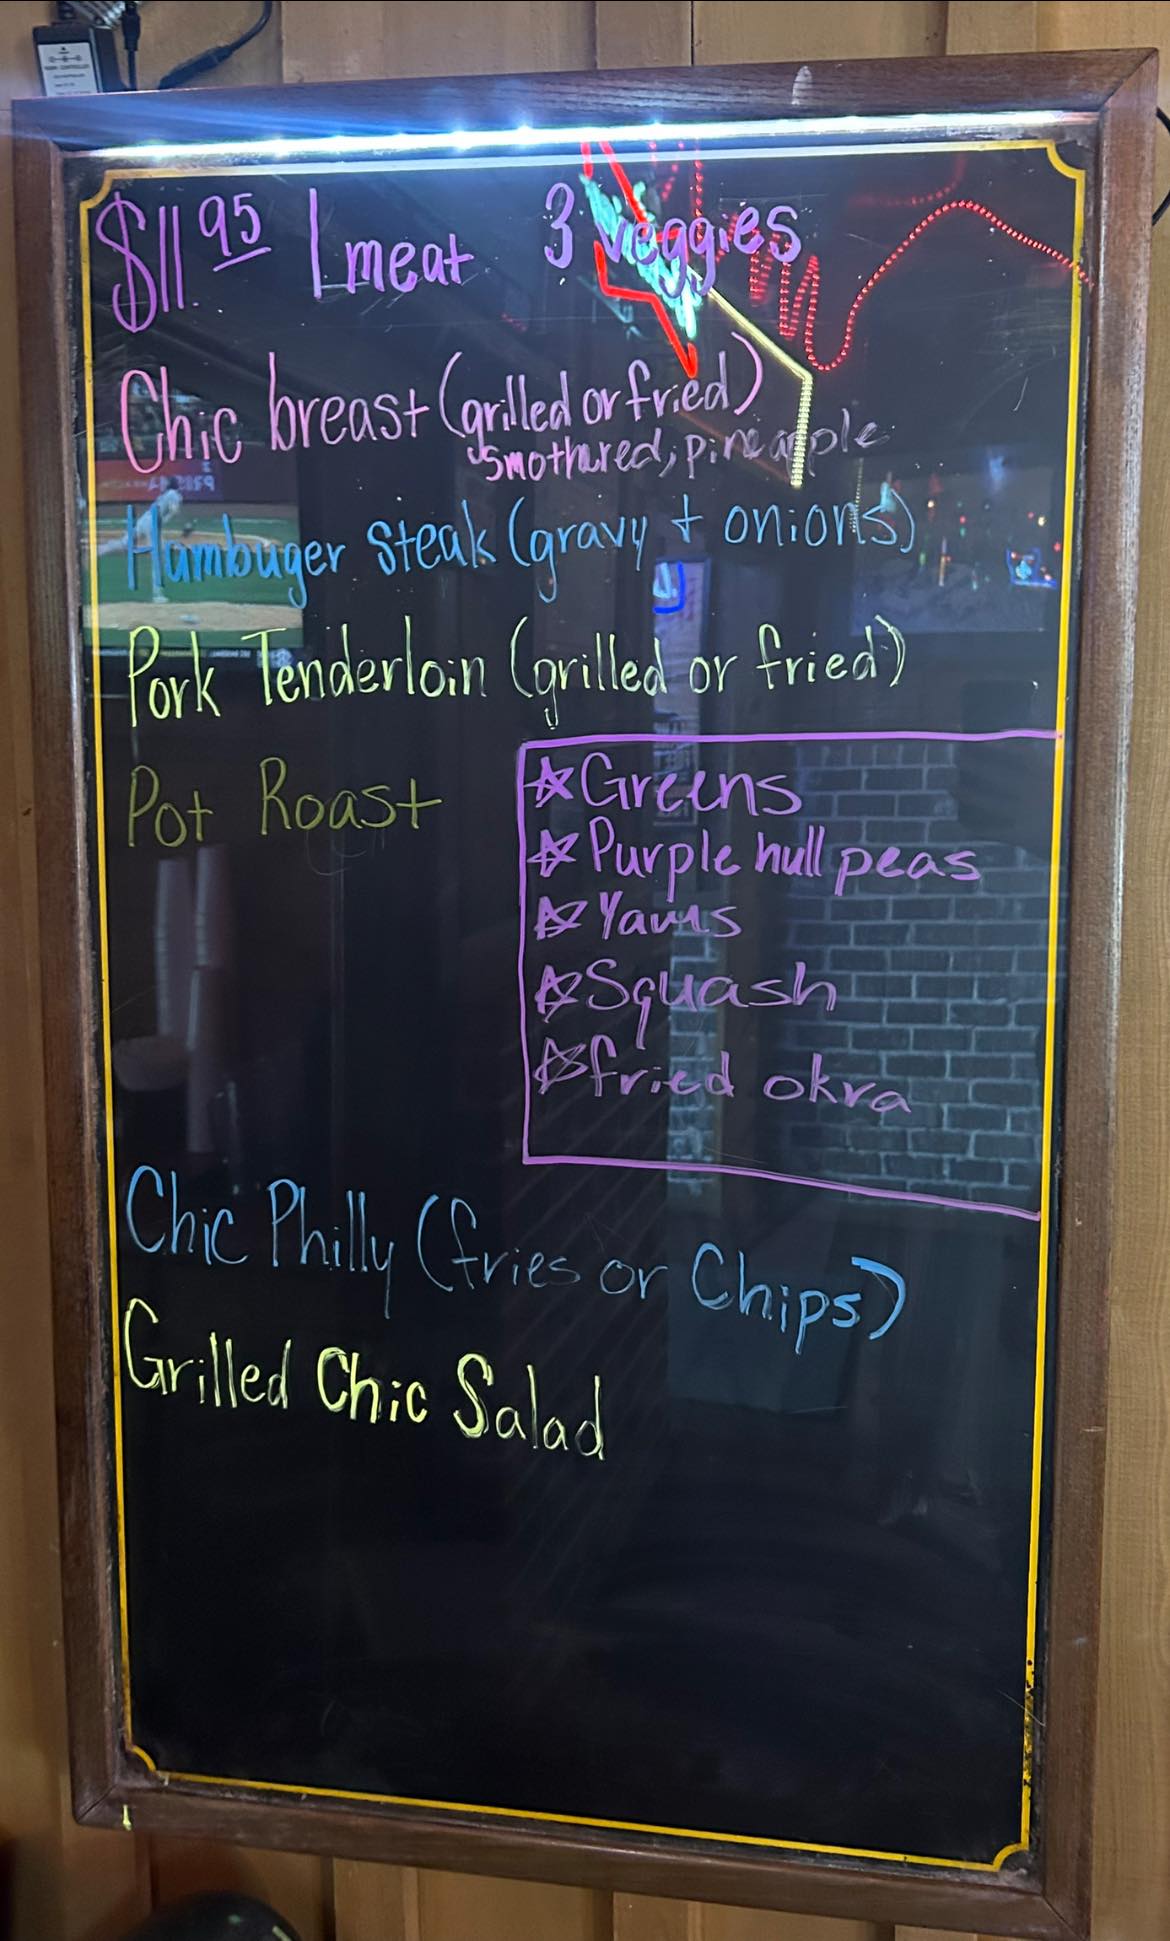 $11.95 1 meat 3 veggies
Chic breast (grilled or fried)
smothered, pineapple
Hambuger steak (gravy + onions)
Pork Tenderloin (grilled or fried)
Pot Roast
☆ Greens
☆ Purple hull peas
☆ Yams
☆ Squash
☆ fried okra
Chic Philly (fries or Chips)
Grilled Chic Salad